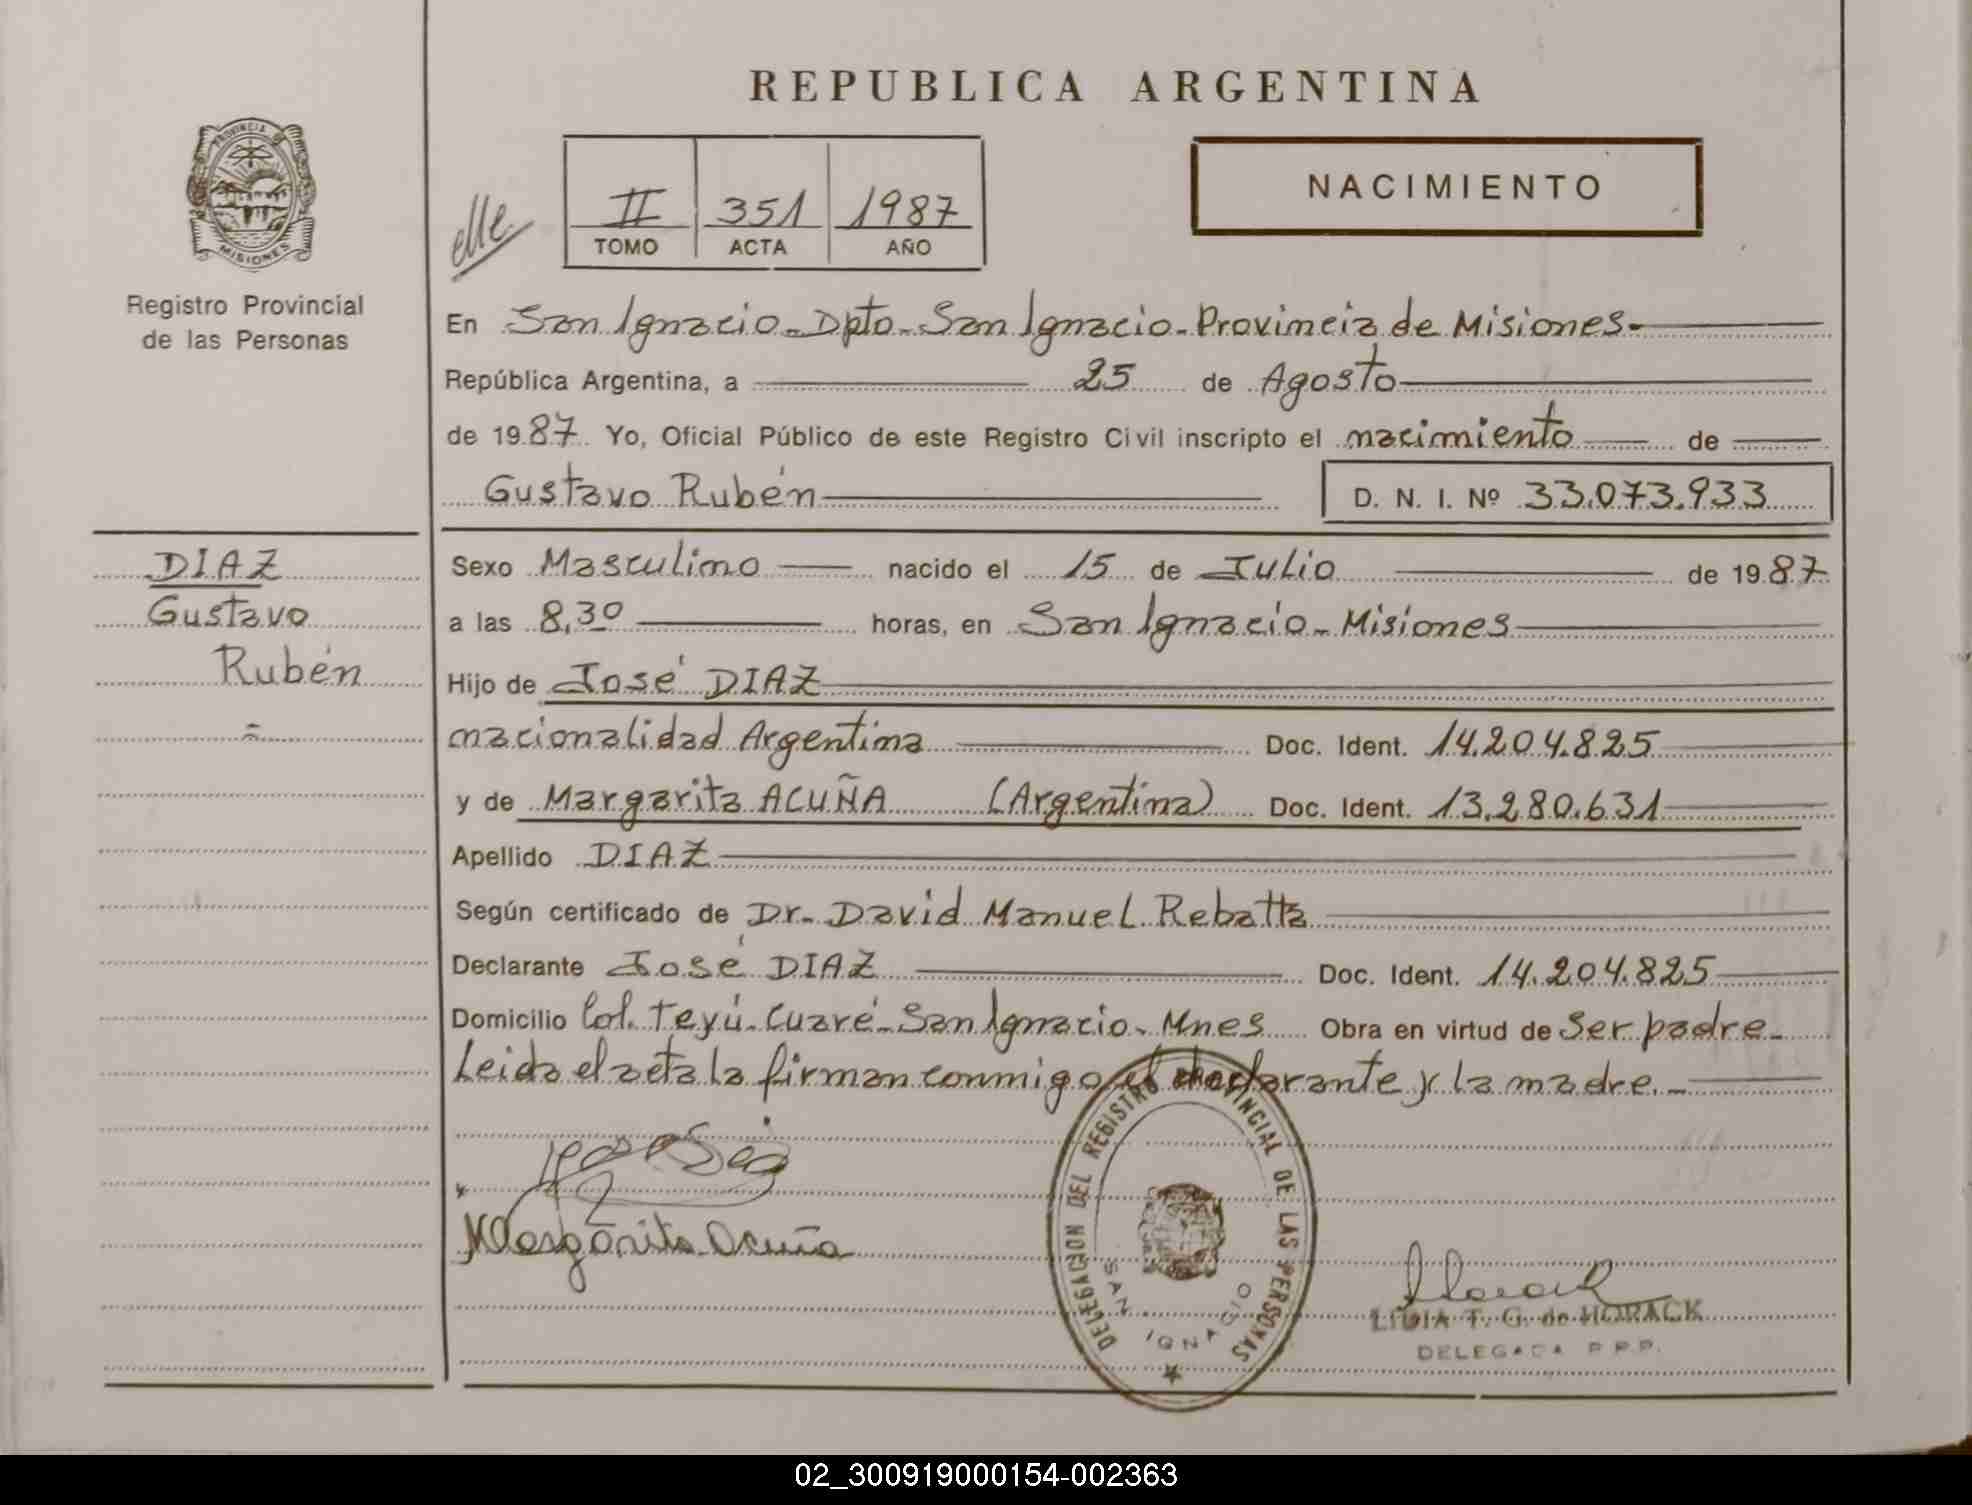 REPUBLICA ARGENTINA
PROVINCIA DE
MISIONES
Registro Provincial
de las Personas
II 351 1987
TOMO ACTA AÑO
NACIMIENTO
En San Ignacio - Dpto - San Ignacio - Provincia de Misiones -
República Argentina, a 25 de Agosto
de 1987 Yo, Oficial Público de este Registro Civil inscripto el nacimiento de
Gustavo Rubén D. N. I. Nº 33.073.933
DIAZ
Gustavo
Rubén
Sexo Masculino nacido el 15 de Julio de 1987
a las 8,30 horas, en San Ignacio - Misiones
Hijo de José DIAZ
nacionalidad Argentina Doc. Ident. 14.204.825
y de Margarita ACUÑA (Argentina) Doc. Ident. 13.280.631
Apellido DIAZ
Según certificado de Dr. David Manuel Rebatta
Declarante José DIAZ Doc. Ident. 14.204.825
Domicilio Col. Teyú - Cuaré - San Ignacio - Mnes Obra en virtud de ser padre -
Leida el acta la firman conmigo el declarante y la madre. -
Margarita Acuña
DELEGACION DEL REGISTRO PROVINCIAL DE LAS PERSONAS
SAN IGNACIO
LIDIA T. G. de HORACK
DELEGADA R.P.P.
02_300919000154-002363